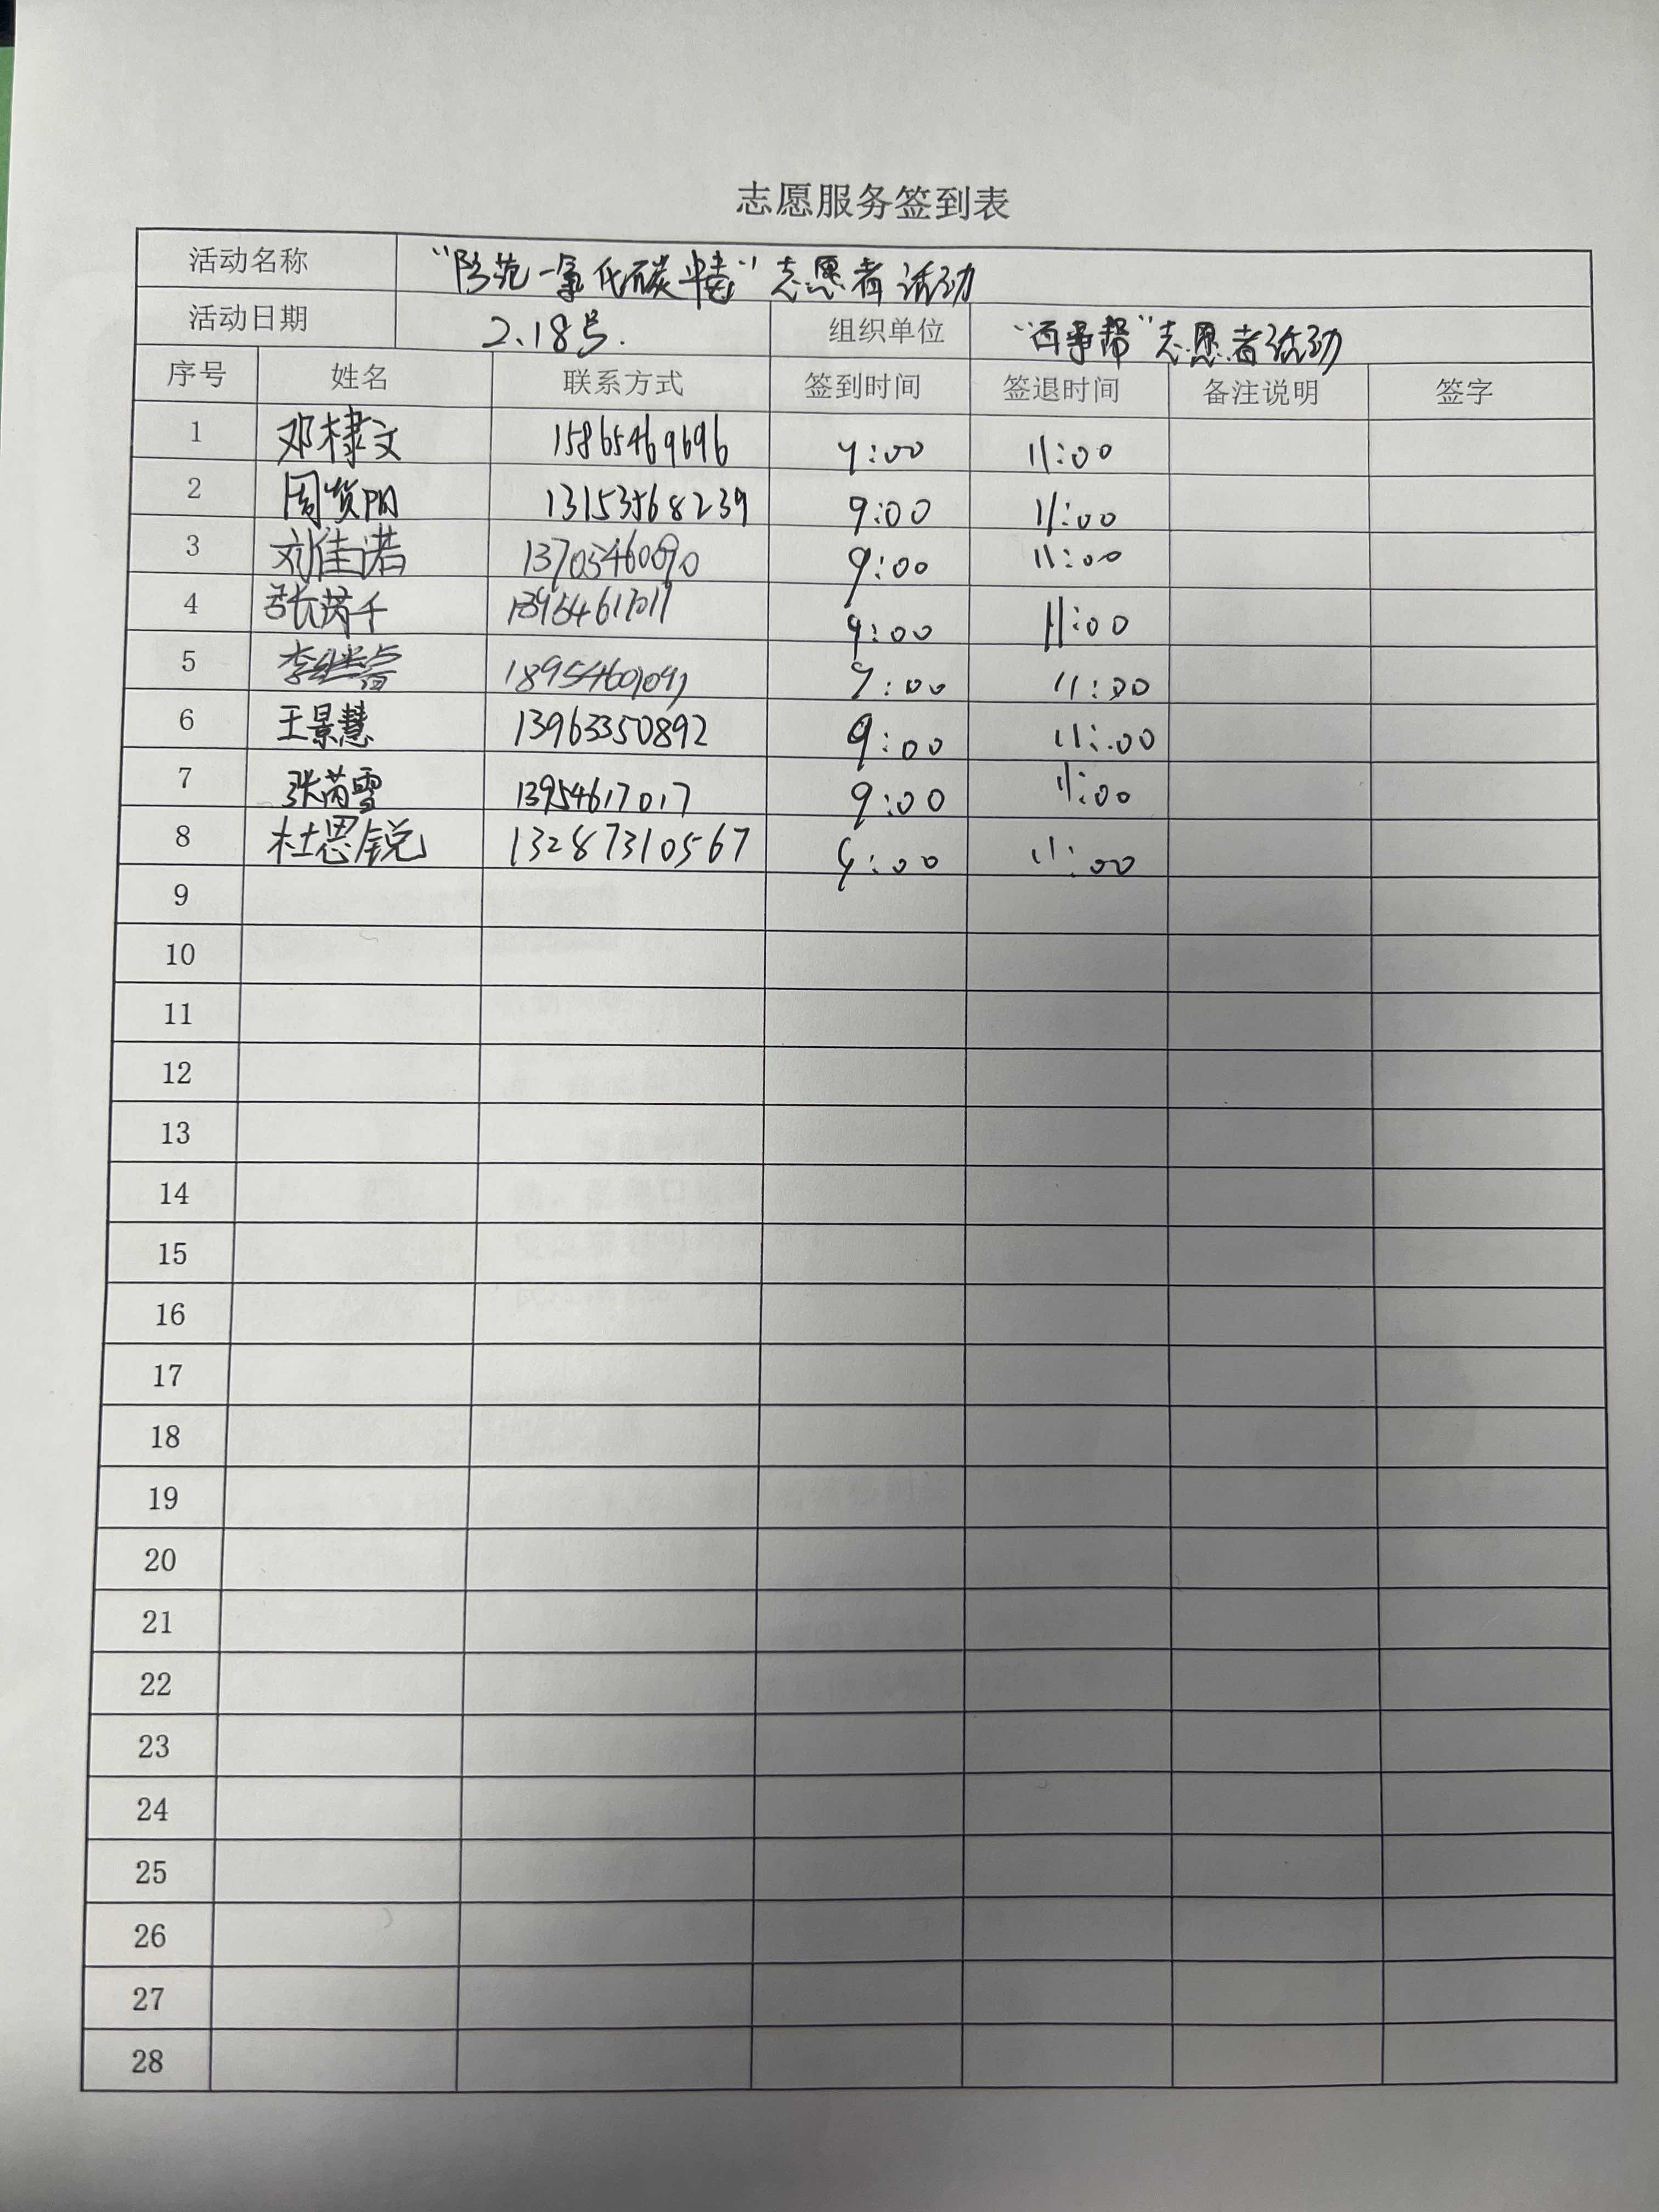 志愿服务签到表
活动名称 “防范一氧化碳中毒”志愿者活动
活动日期 2.18号. 组织单位 “百事帮”志愿者活动
序号 姓名 联系方式 签到时间 签退时间 备注说明 签字
1 邓棣文 15865469696 9:00 11:00
2 周贤阳 13153568239 9:00 11:00
3 刘佳诺 13705460090 9:00 11:00
4 张芮千 13954617017 9:00 11:00
5 李继睿 9:00 11:00
6 王景慧 13963350892 9:00 11:00
7 张芮雪 13954617017 9:00 11:00
8 杜恩锐 13287310567 9:00 11:00
9
10
11
12
13
14
15
16
17
18
19
20
21
22
23
24
25
26
27
28